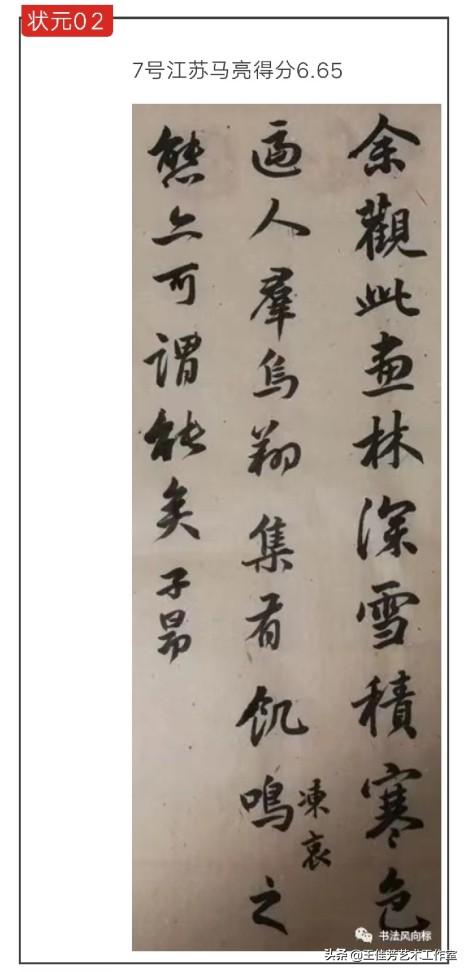 状元02
7号江苏马亮得分6.65
余觀此画林深雪積寒色
逼人羣烏翔集有飢鳴之
凍哀
態亦可謂能矣子昂
书法风向标
头条@王佳芳艺术工作室